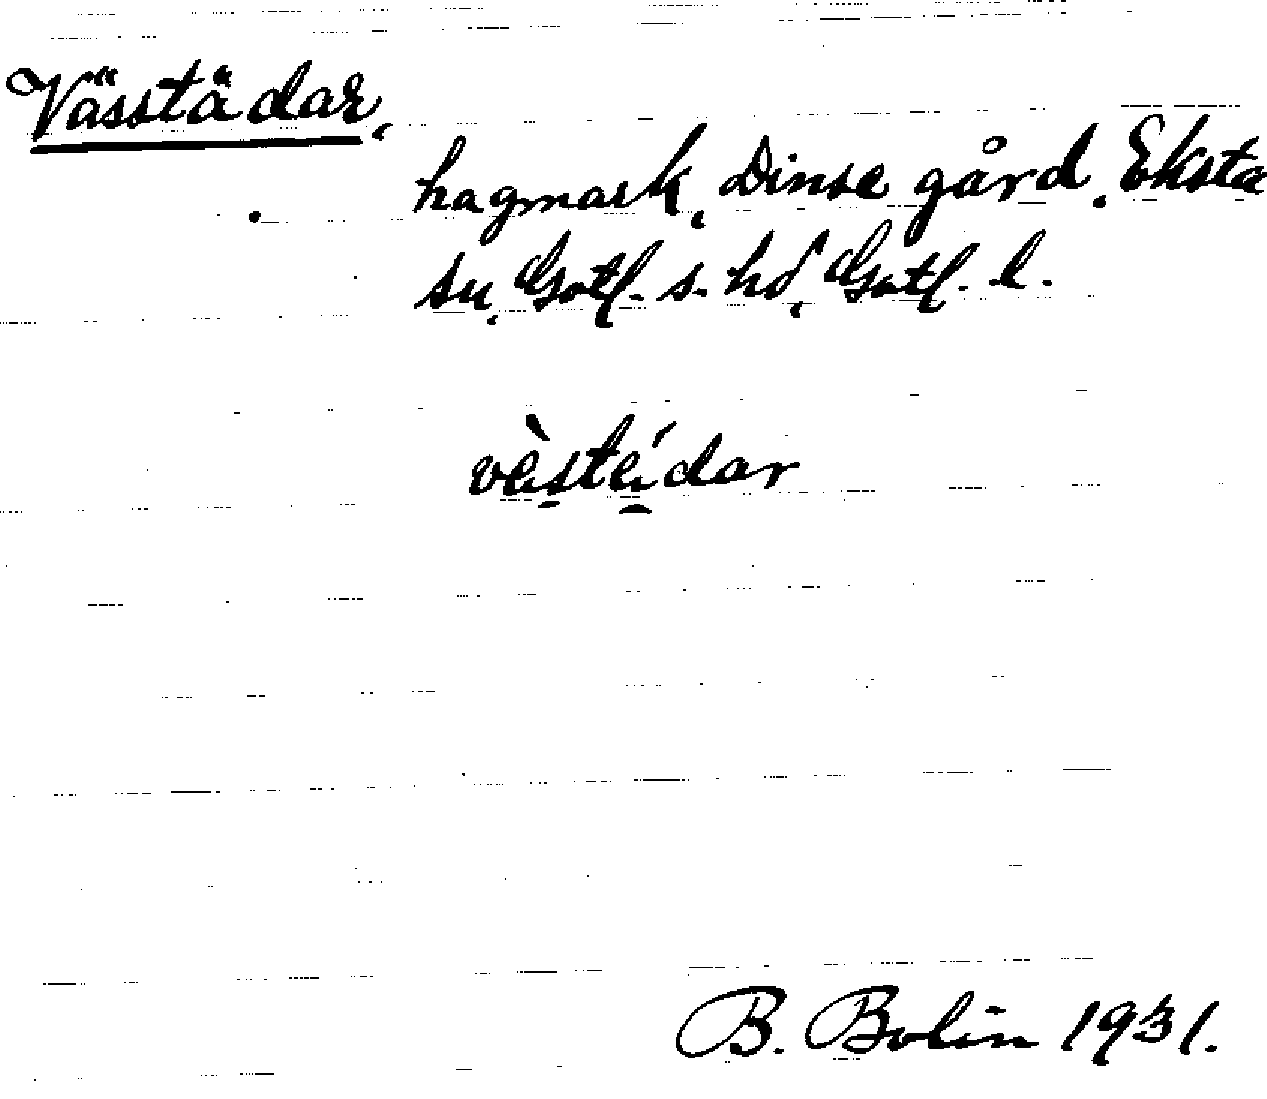 Västädar,
hagmark, Dinse gård. Eksta
su, Gotl. s. hd, Gotl. l.
vèsté́dar
B. Bolin 1931.